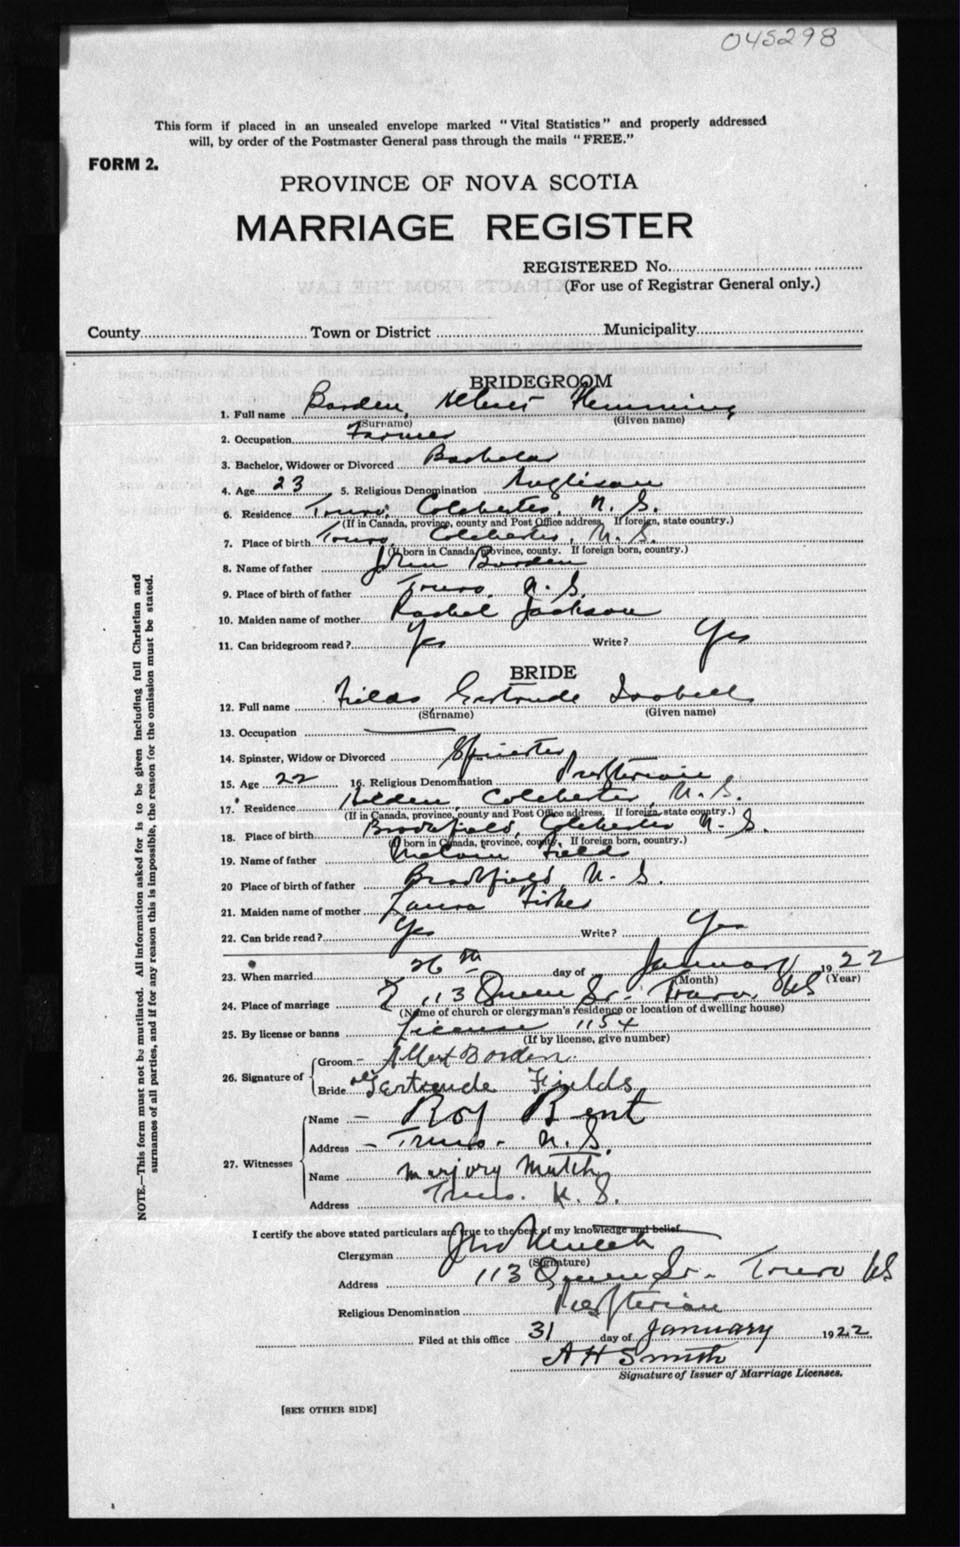 045298
This form if placed in an unsealed envelope marked "Vital Statistics" and properly addressed
will, by order of the Postmaster General pass through the mails "FREE."
FORM 2.
PROVINCE OF NOVA SCOTIA
MARRIAGE REGISTER
REGISTERED No.
(For use of Registrar General only.)
County Town or District Municipality
BRIDEGROOM
1. Full name Borden, Flemming
(Surname) (Given name)
2. Occupation Farmer
3. Bachelor, Widower or Divorced Bachelor
4. Age 23 5. Religious Denomination Anglican
6. Residence Truro, Colchester, N. S.
(If in Canada, province, county and Post Office address. If foreign, state country.)
7. Place of birth Truro, Colchester, N. S.
(If born in Canada, province, county. If foreign born, country.)
8. Name of father John Borden
9. Place of birth of father Truro, N. S.
10. Maiden name of mother Rachel Jackson
11. Can bridegroom read? Yes Write? Yes
BRIDE
12. Full name Fields Gertrude Isobell
(Surname) (Given name)
13. Occupation
14. Spinster, Widow or Divorced Spinster
15. Age 22 16. Religious Denomination Presbyterian
17. Residence Hilden, Colchester, N. S.
(If in Canada, province, county and Post Office address. If foreign, state country.)
18. Place of birth Brookfield, Colchester N. S.
(If born in Canada, province, county. If foreign born, country.)
19. Name of father Fields
20 Place of birth of father Brookfield, N. S.
21. Maiden name of mother Laura Fisher
22. Can bride read? Yes Write? Yes
23. When married 26th day of January 1922
(Month) (Year)
24. Place of marriage 113 Queen St. Truro, NS
(Name of church or clergyman's residence or location of dwelling house)
25. By license or banns License 1154
(If by license, give number)
26. Signature of Groom - Albert Borden
Bride Gertrude Fields
27. Witnesses Name - Roy Bent
Address - Truro - N. S.
Name Marjory
Address Truro. N. S.
I certify the above stated particulars are true to the best of my knowledge and belief.
Clergyman
(Signature)
Address 113 Queen St. - Truro NS
Religious Denomination Presbyterian
Filed at this office 31 day of January 1922
A H Smith
Signature of Issuer of Marriage Licenses.
[SEE OTHER SIDE]
NOTE.—This form must not be mutilated. All information asked for is to be given including full Christian and
surnames of all parties, and if for any reason this is impossible, the reason for the omission must be stated.